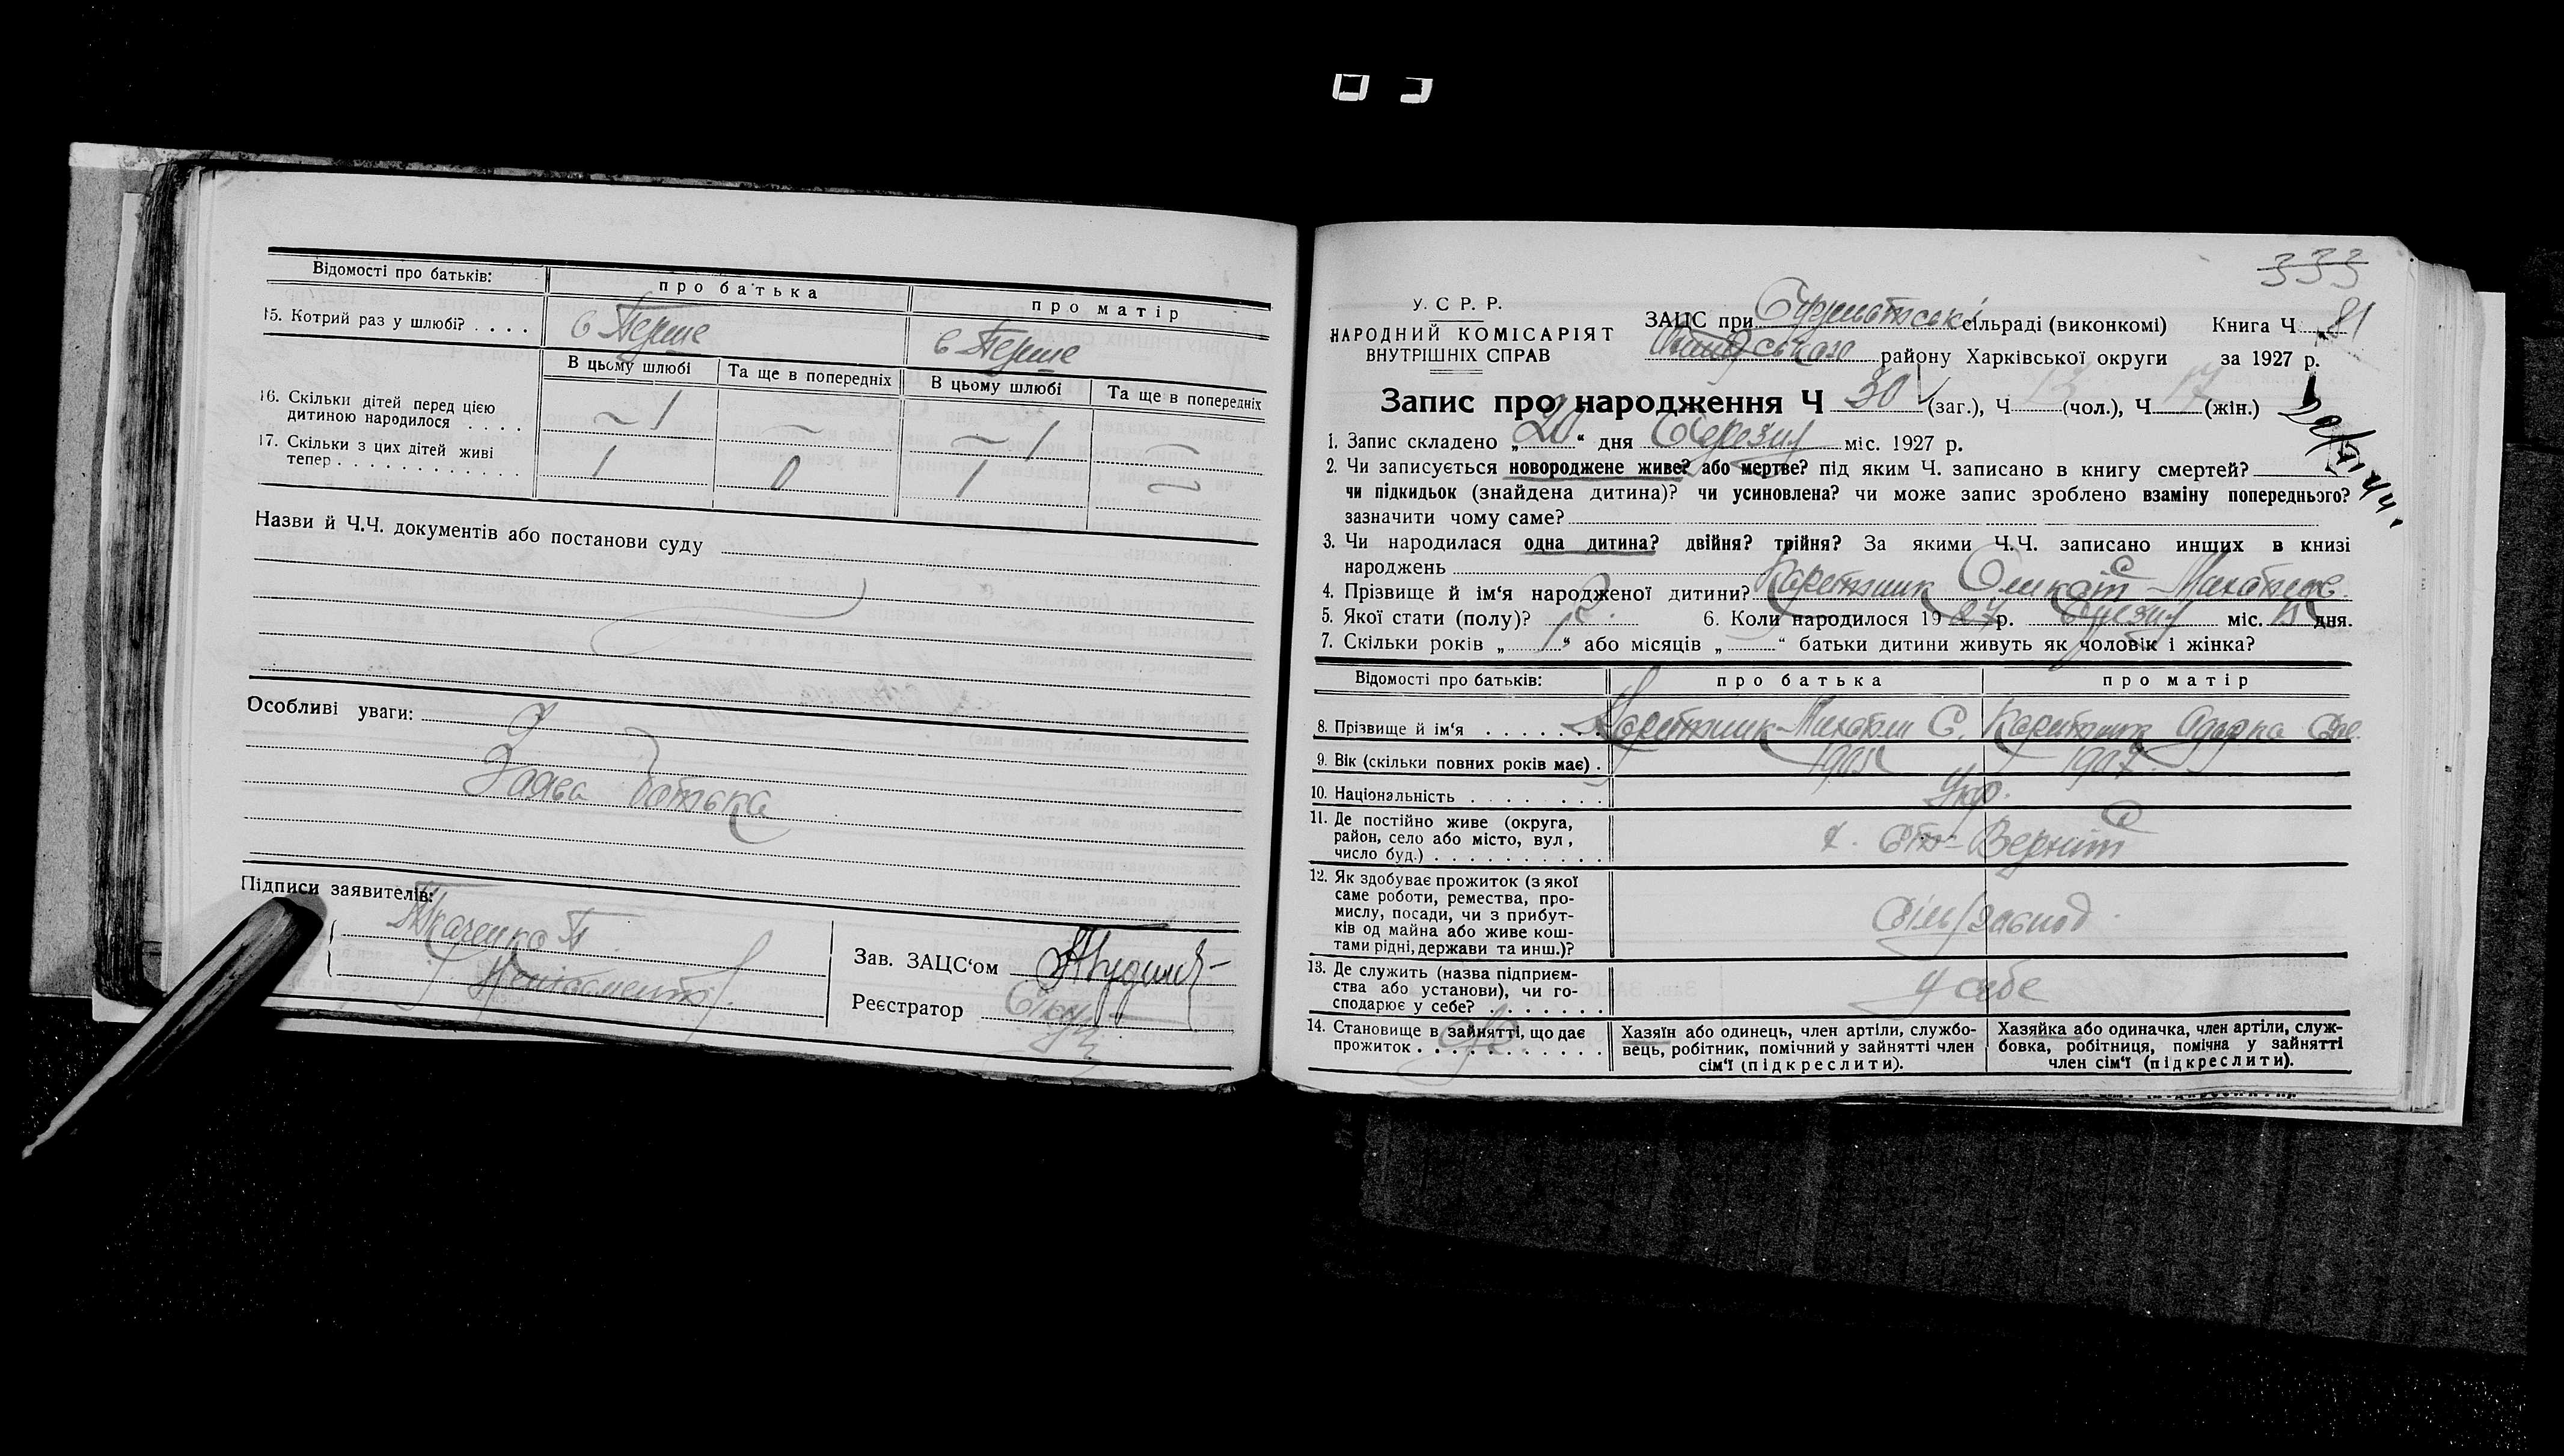 Відомості про батьків:
про батька
про матір
15. Котрий раз у шлюбі? . . . .
в Перше
в Перше
В цьому шлюбі
Та ще в попередніх
В цьому шлюбі
Та ще в попередніх
16. Скільки дітей перед цією
дитиною народилося . . . .
1
1
17. Скільки з цих дітей живі
тепер . . . . . . . . . . . .
1
0
1
Назви й Ч.Ч. документів або постанови суду
Особливі уваги:
Заява батька
Підписи заявителів:
Ткаченко П
Зав. ЗАЦС'ом
Реєстратор
333
У. С Р. Р.
НАРОДНИЙ КОМІСАРІЯТ
ВНУТРІШНІХ СПРАВ
ЗАЦС при сільраді (виконкомі) Книга Ч 81
району Харківської округи за 1927 р.
Запис про народження Ч 30 (заг.), Ч 13 (чол.), Ч 17 (жін.)
1. Запис складено „20“ дня Березня міс. 1927 р.
2. Чи записується новороджене живе? або мертве? під яким Ч. записано в книгу смертей?
чи підкидьок (знайдена дитина)? чи усиновлена? чи може запис зроблено взаміну попереднього?
зазначити чому саме?
3. Чи народилася одна дитина? двійня? трійня? За якими Ч.Ч. записано инших в книзі
народжень
4. Прізвище й ім'я народженої дитини?
5. Якої стати (полу)? 6. Коли народилося 1927 р. березня міс. дня.
7. Скільки років „ “ або місяців „ “ батьки дитини живуть як чоловік і жінка?
Відомості про батьків:
про батька
про матір
8. Прізвище й ім'я . . . . . . .
9. Вік (скільки повних років має) .
1907
10. Національність . . . . . . .
Укр.
11. Де постійно живе (округа,
район, село або місто, вул,
число буд.) . . . . . . . . . .
12. Як здобуває прожиток (з якої
саме роботи, ремества, про-
мислу, посади, чи з прибут-
ків од майна або живе кош-
тами рідні, держави та инш.)?
13. Де служить (назва підприєм-
ства або установи), чи го-
сподарює у себе? . . . . . . .
у себе
14. Становище в зайнятті, що дає
прожиток . . . . . . . . . . .
Хазяїн або одинець, член артіли, службо-
вець, робітник, помічний у зайнятті член
сім'ї (підкреслити).
Хазяйка або одиначка, член артіли, служ-
бовка, робітниця, помічна у зайнятті
член сім'ї (підкреслити).